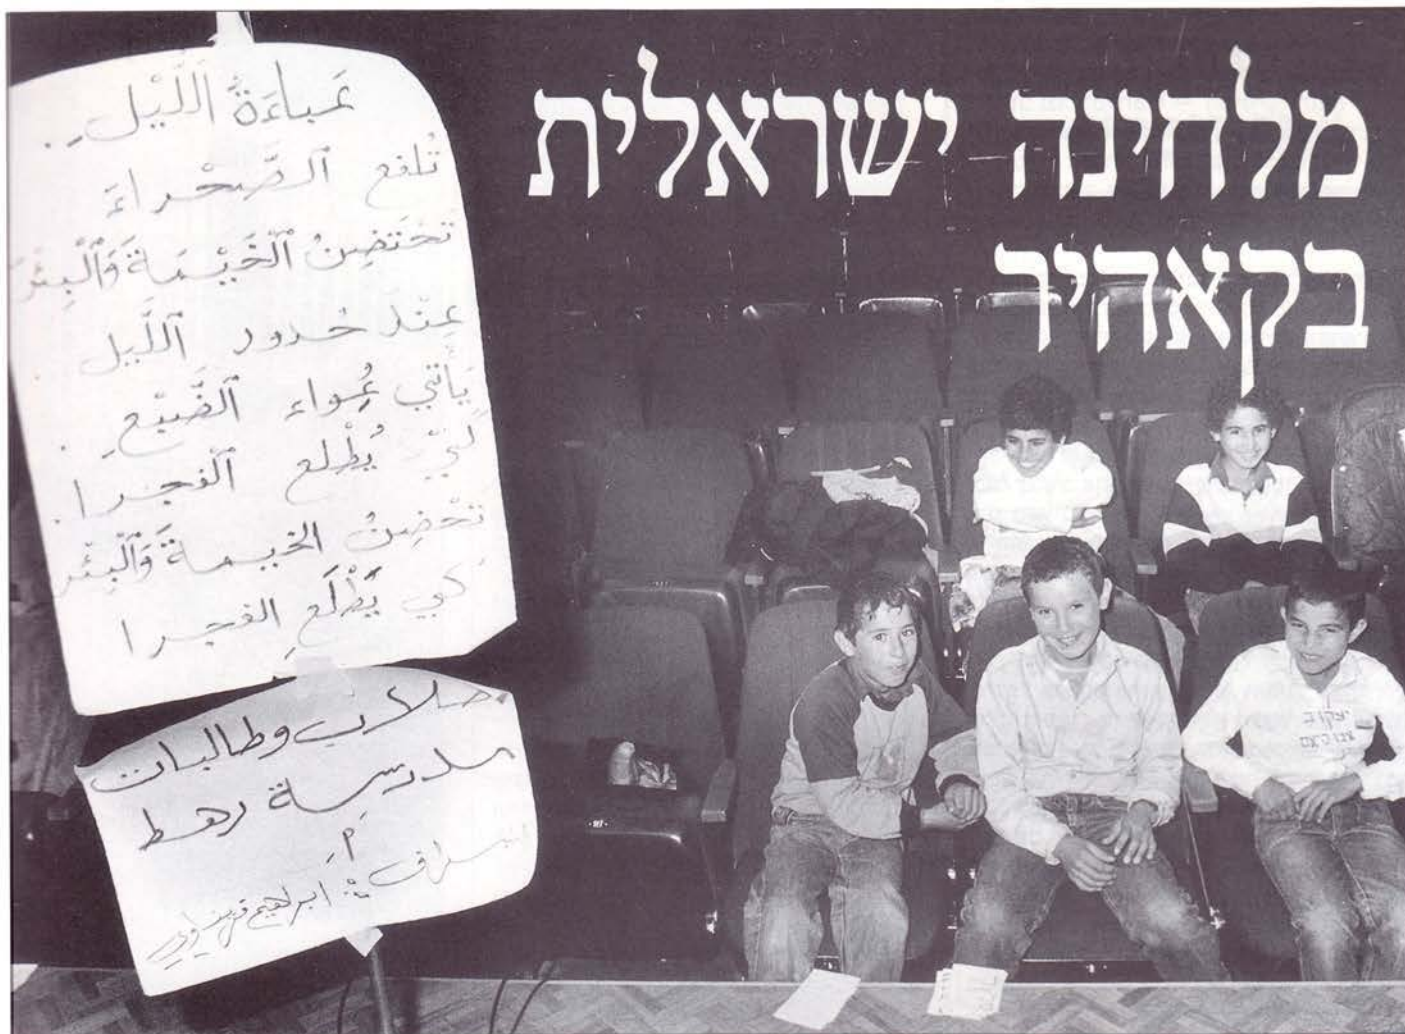 מלחינה ישראלית
בקאהיר
عَباءَةُ ٱللَّيْل..
تُلفع ٱلصَّحْراءَ
تحْتَضِنُ ٱلْخَيْمَةَ وَٱلْبِئْرَ
عِنْدَ حُدود ٱللَّيل
يَأتي عُواء ٱلضَّبْعِ.
لكَيْ يُطْلع ٱلفجرا.
تحْضِنُ الخيمةَ وَٱلْبِئْر
كي يَطْلَع الفجرا
طلاب وطالبات
مدرسة رهط أ
اشراف: ابراهيم
יעקוב